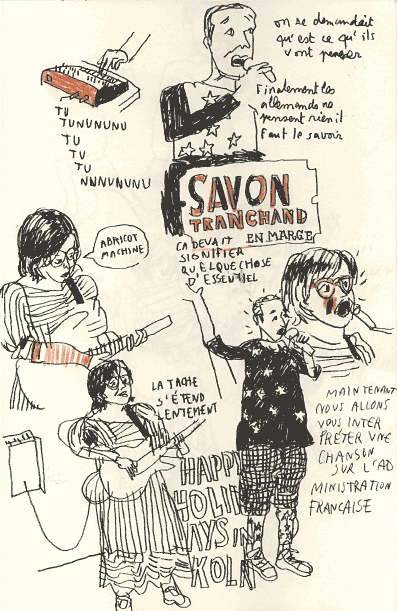 on se demandait
qu'est ce qu'ils
vont penser
Finalement les
allemands ne
pensent rien il
faut le savoir
TU
TUNUNUNU
TU
TU
TU
NNNUNUNU
SAVON
TRANCHAND
EN MARGE
ABRICOT
MACHINE
ÇA DEVAIT
SIGNIFIER
QUELQUECHOSE
D'ESSENTIEL
LA TACHE
S'ÉTEND
LENTEMENT
MAINTENANT
NOUS ALLONS
VOUS INTER
PRÉTER UNE
CHANSON
SUR L'AD
MINISTRATION
FRANÇAISE
HAPPY
HOLID
AYS IN
KOLN